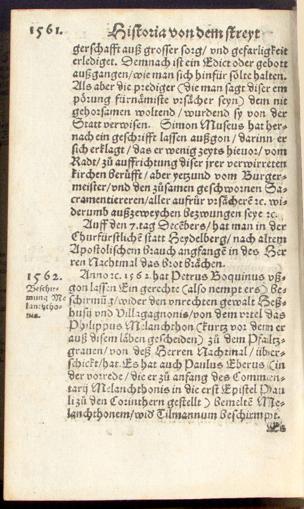 1561. Historia von dem streyt
gerschafft auß grosser sorg/ vnd gefarligkeit
erlediget. Demnach ist ein Edict oder gebott
außgangen/wie man sich hinfür sölte halten.
Als aber die prediger (die man sagt diser em
pörung fürnämiste vrsächer seyn) dem nit
gehorsamen woltend/ wurdend sy von der
Statt verwisen. Simon Museus hat her-
nach ein geschrifft lassen außgon/ darinn er
sich erklagt/ das er wenig zeyts hieuor/ vom
Radt/ zů auffrichtung diser jrer verwirreten
kirchen berüfft/ aber yetzund vom Burger-
meister/vnd den zůsamen geschwornen Sa-
cramentiereren/aller aufrür vrsächerē ꝛc. wi-
derumb außzeweychen bezwungen seye ꝛc.
Auff den 7. tag Decēbers/ hat man in der
Churfürstlichē statt Heydelberg/ nach altem
Apostolischem Brauch angfangē in des Her
ren Nachtmal das brot brächen.
1562. Anno ꝛc. 1562. hat Petrus Boquinus vß-
Beschir-
mung Me
lanchtho-
nis.
gon lassen Ein gerechte (also nempt ers) be-
schirmūg/wider den vnrechten gewalt Heß-
husij vnd Villagagnonis/von dem vrtel das
Philippus Melanchthon (kurtz vor dem er
auß disem läben gescheiden) zů dem Pfaltz-
grauen/ von deß Herren Nachtmal/ über-
schickt/hat. Es hat auch Paulus Eberus (in
der vorrede/die er zů anfang des Commen-
tarij Melanchthonis in die erst Epistel Pau
li zů den Corinthern gestellt) bemeltē Me-
lanchthonem/wid Tilmannum beschirmpt.